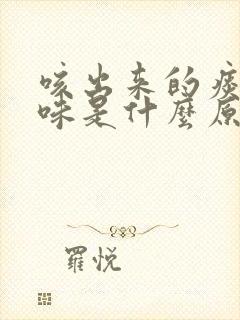 咳出来的痰
味是什麼原
羅悅